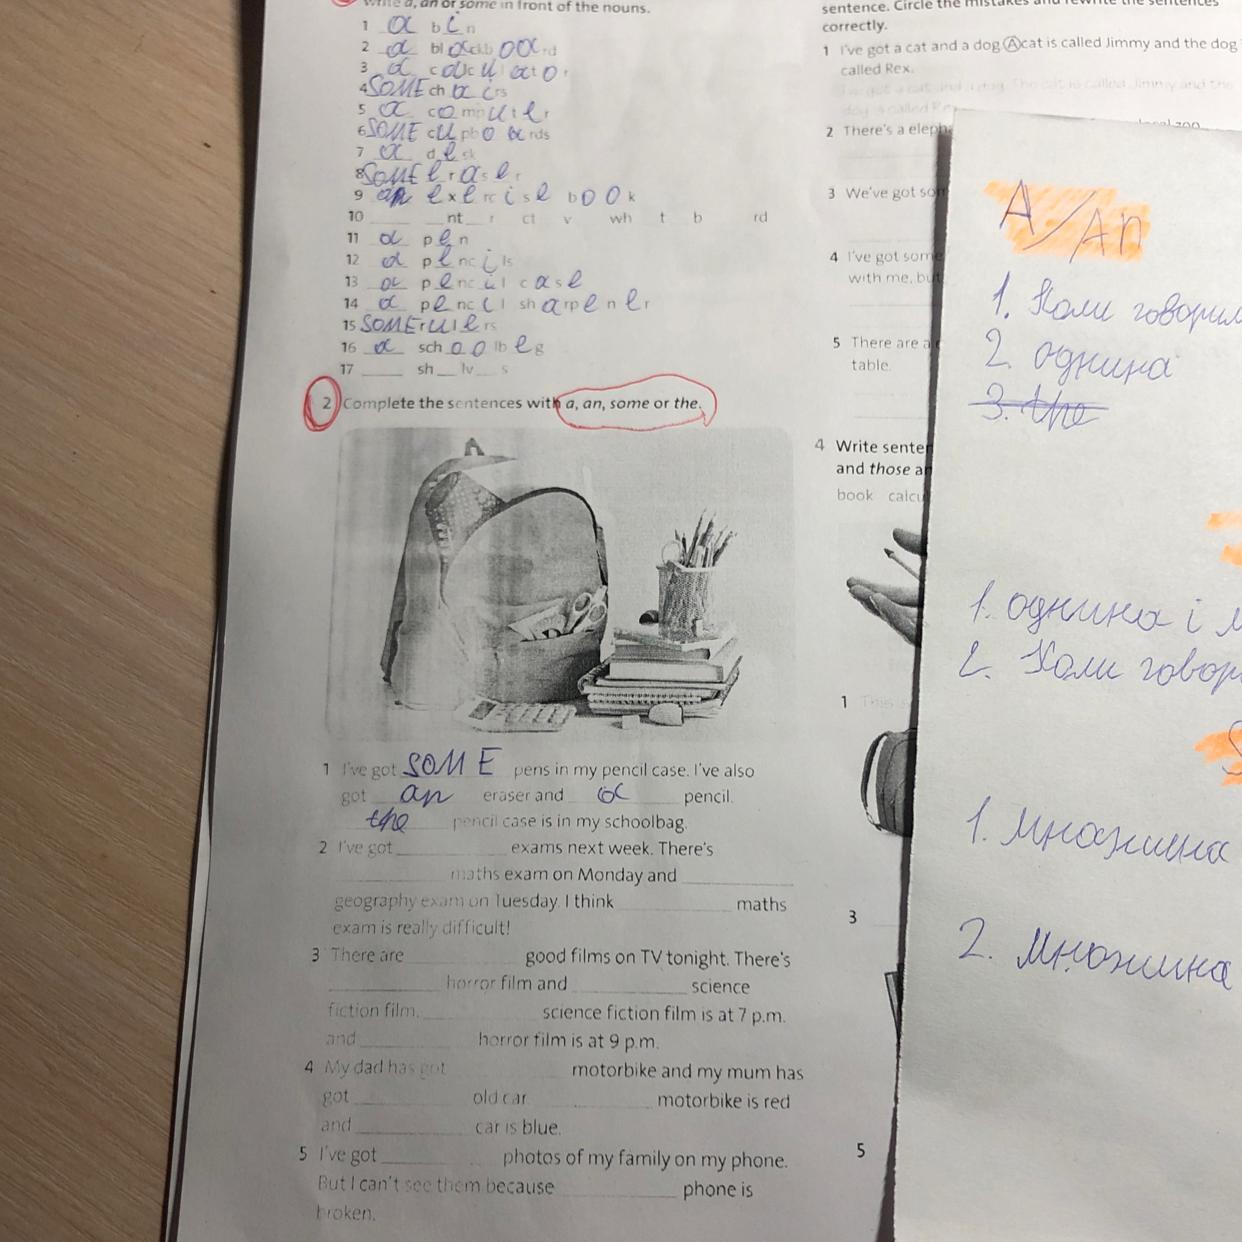 Write a, an or some in front of the nouns.
1 a bin
2 a blackboard
3 a calculator
4 SOME chairs
5 a computer
6 SOME cupboards
7 a desk
8 SOME eraser
9 an exercise book
10 ____ __nt_ r ct v wh t b rd
11 a pen
12 a pencils
13 a pencil case
14 a pencil sharpener
15 SOME rulers
16 a schoolbeg
17 ____ sh__lv__s
2 Complete the sentences with a, an, some or the.
1 I've got SOME pens in my pencil case. I've also
got an eraser and a pencil.
the pencil case is in my schoolbag.
2 I've got ____ exams next week. There's
____ maths exam on Monday and ____
geography exam on Tuesday. I think ____ maths
exam is really difficult!
3 There are ____ good films on TV tonight. There's
____ horror film and ____ science
fiction film. ____ science fiction film is at 7 p.m.
and ____ horror film is at 9 p.m.
4 My dad has got ____ motorbike and my mum has
got ____ old car. ____ motorbike is red
and ____ car is blue.
5 I've got ____ photos of my family on my phone.
But I can't see them because ____ phone is
broken.
sentence. Circle the mistakes and rewrite the sentences
correctly.
1 I've got a cat and a dog. A cat is called Jimmy and the dog
called Rex.
I've got a cat and a dog. The cat is called Jimmy and the
dog is called Rex
2 There's a eleph
local zoo
3 We've got so
4 I've got som
with me, bu
5 There are a
table.
4 Write senten
and those a
book calcu
1 This is
3
5
A/An
1. Коли говорим
2. однина
3. the
1. однина і м
2. Коли говор
S
1. множина
2. множина